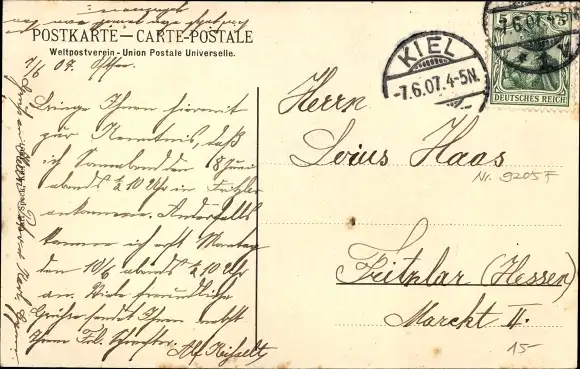 POSTKARTE — CARTE-POSTALE
Weltpostverein - Union Postale Universelle.
7/6 07.
Bringe Ihnen hiermit
zur Kenntnis, daß
ich Sonnabend den 8 Juni
abends ½ 10 Uhr in Fritzlar
ankomme. Andernfalls
komme ich erst Montag
den 10/6 abends ½ 10 Uhr
an. Viele freundliche
Grüße sendet Ihnen nebst
Ihrer Frl.
KIEL
-7.6.07.4-5N.
7.6.07.4-5N.
5 5
DEUTSCHES REICH
Herrn
Louis Haas
Nr. 9205 F
Fritzlar (Hessen)
Marckt II.
15-